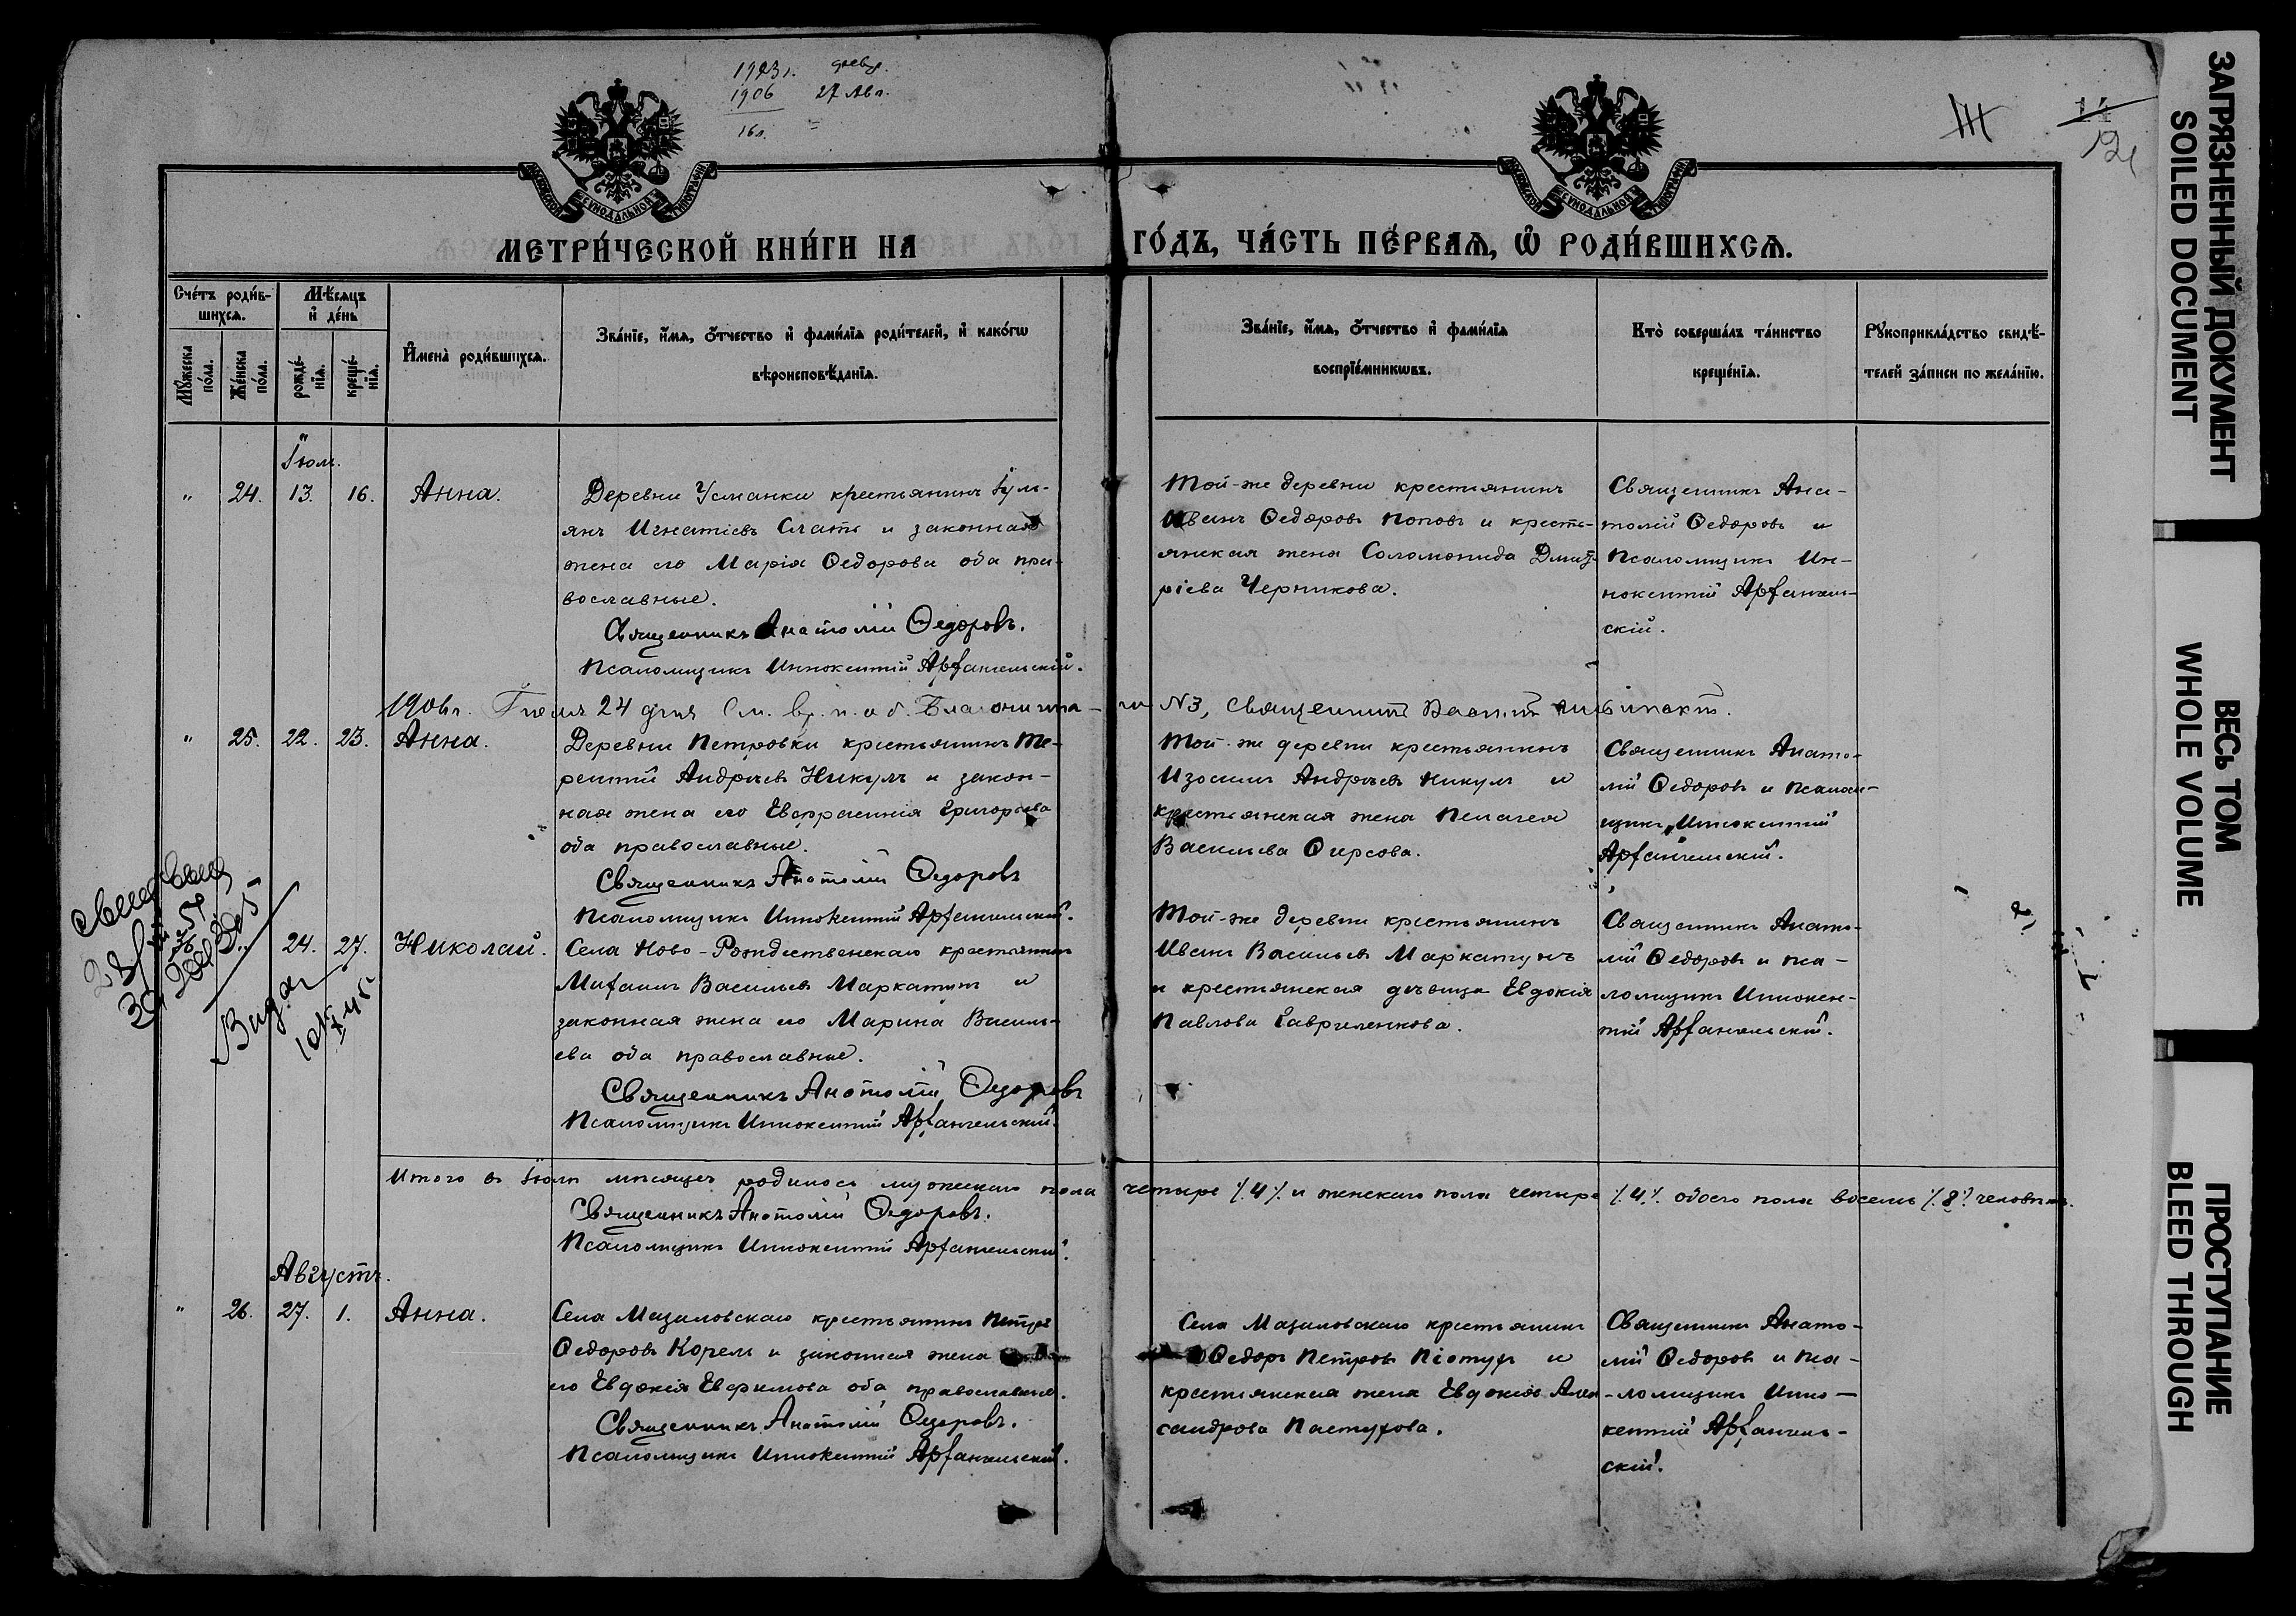 1923 г.
1906 27 Авг.
16 л.
МОСКОВСКОЙ СѴНОДАЛЬНОЙ ТИПОГРАФІИ
МОСКОВСКОЙ СѴНОДАЛЬНОЙ ТИПОГРАФІИ
МЕТРИ́ЧЕСКОЙ КНИ́ГИ НА ГО́ДЪ, ЧА́СТЬ ПЕ́РВАѦ, Ѡ҆ РОДИ́ВШИХСѦ.
Сче́тъ роди́в-
шихсѧ.
Мѣ́сѧцъ
и҆ де́нь
Мꙋ́жеска по́ла.
Же́нска по́ла.
рожде́-
нїѧ.
креще́-
нїѧ.
И҆мена̀ роди́вшихсѧ.
Зва́нїе, и҆́мѧ, ѻ҆́тчество и҆ фами́лїѧ роди́телей, и҆ како́гѡ
вѣроисповѣ́данїѧ.
Зва́нїе, и҆́мѧ, ѻ҆́тчество и҆ фами́лїѧ
воспрїе́мникѡвъ.
Кто̀ соверша́лъ та́инство
креще́нїѧ.
Рꙋкоприкла́дство свидѣ́-
телей за́писи по жела́нїю.
Іюль.
" 24. 13. 16. Анна.
Деревни Усманки крестьянинъ Іул-
янъ Игнатіевъ Слать и законная
жена его Марія Ѳедорова оба пра-
вославные.
Священникъ Анатолій Ѳедоровъ.
Псаломщикъ Иннокентій Архангельскій.
Той-же деревни крестьянинъ
Иванъ Ѳедоровъ Поповъ и кресть-
янская жена Соломонида Дмит-
ріева Черникова.
Священникъ Ана-
толій Ѳедоровъ и
Псаломщикъ Ин-
нокентій Архангель-
скій.
1906 г. 24 дня См. № 3, Священникъ
" 25. 22. 23. Анна.
Деревни Петровки крестьянинъ Те-
рентій Андреевъ Никулъ и закон-
ная жена его Евфросинія Григорьева
оба православные.
Священникъ Анатолій Ѳедоровъ
Псаломщикъ Иннокентій Архангельскій.
Той-же деревни крестьянинъ
Изосимъ Андреевъ Никулъ и
крестьянская жена Пелагея
Васильева Ѳирсова.
Священникъ Анато-
лій Ѳедоровъ и Псалом-
щикъ Иннокентій
Архангельскій.
Выдан
24. 27. Николай.
Села Ново-Рождественскаго крестьянинъ
Михаилъ Васильевъ Маркатунъ и
законная жена его Марина Василь-
ева оба православные.
Священникъ Анатолій Ѳедоровъ
Псаломщикъ Иннокентій Архангельскій.
Той-же деревни крестьянинъ
Иванъ Васильевъ Маркатунъ
и крестьянская дѣвица Евдокія
Павлова Гавриленкова.
Священникъ Анато-
лій Ѳедоровъ и Пса-
ломщикъ Иннокен-
тій Архангельскій.
Итого въ Іюлѣ мѣсяцѣ родилось мужескаго пола четыре /.4./ и женскаго пола четыре /.4./. обоего пола восемь /.8./ человѣкъ.
Священникъ Анатолій Ѳедоровъ.
Псаломщикъ Иннокентій Архангельскій.
Августъ.
" 26. 27. 1. Анна.
Села Мазаловскаго крестьянинъ Петръ
Ѳедоровъ Корель и законная жена
его Евдокія Евфимова оба православные.
Священникъ Анатолій Ѳедоровъ.
Псаломщикъ Иннокентій Архангельскій.
Села Мазаловскаго крестьянинъ
Ѳедоръ Петровъ Пістухъ и
крестьянская жена Евдокія Алек-
сандрова Пастухова.
Священникъ Анато-
лій Ѳедоровъ и Пса-
ломщикъ Инно-
кентій Архангель-
скій.
ЗАГРЯЗНЕННЫЙ ДОКУМЕНТ
SOILED DOCUMENT
ВЕСЬ ТОМ
WHOLE VOLUME
ПРОСТУПАНИЕ
BLEED THROUGH